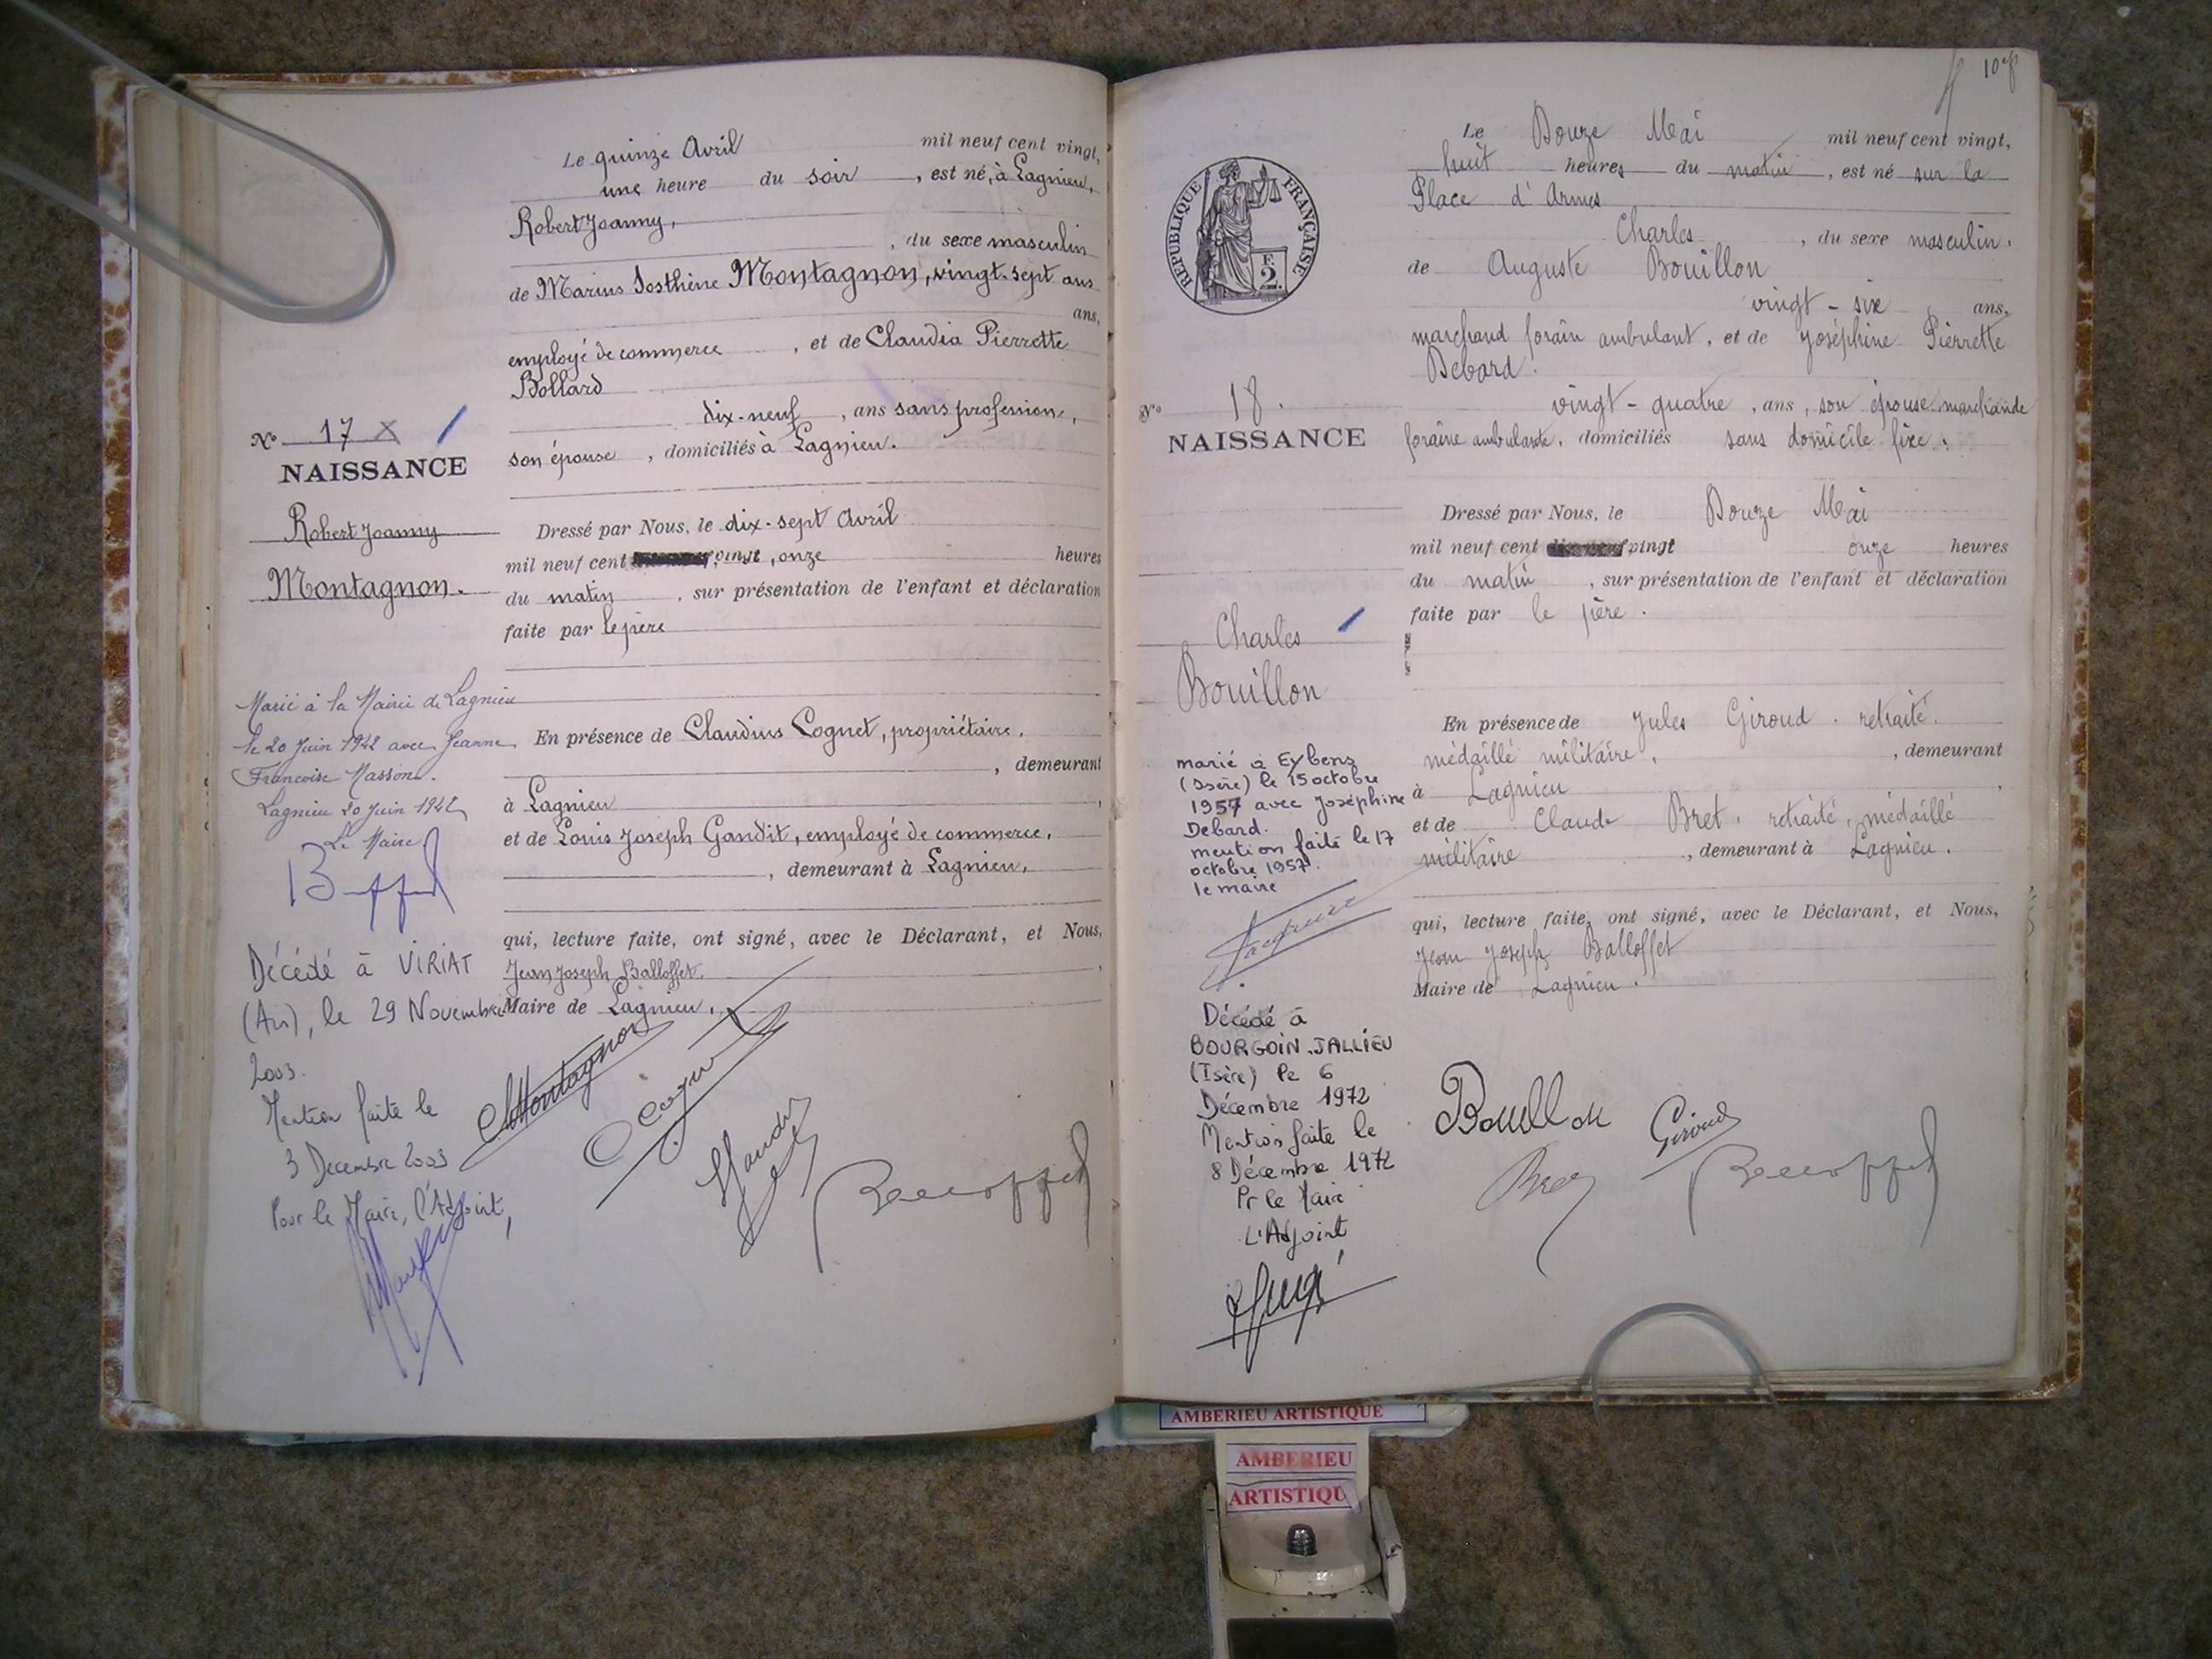 Le quinze Avril mil neuf cent vingt,
une heure du soir, est né, à Lagnieu,
Robert Joanny,
, du sexe masculin
de Marius Sosthène Montagnon, vingt-sept ans
ans,
employé de commerce, et de Claudia Pierrette
Bollard
dix-neuf, ans sans profession,
son épouse, domiciliés à Lagnieu.
N° 17 X
NAISSANCE
Robert Joanny
Montagnon.
Dressé par Nous, le dix-sept Avril
mil neuf cent vingt, onze heures
du matin, sur présentation de l'enfant et déclaration
faite par le père
Marié à la Mairie de Lagnieu
le 20 Juin 1942 avec Jeanne
Françoise Masson.
Lagnieu 20 Juin 1942
Le Maire
En présence de Claudius Cognet, propriétaire,
, demeurant
à Lagnieu,
et de Louis Joseph Gandit, employé de commerce,
, demeurant à Lagnieu,
qui, lecture faite, ont signé, avec le Déclarant, et Nous,
Jean Joseph Balloffet,
Maire de Lagnieu.
Décédé à VIRIAT
(Ain), le 29 Novembre
2003.
Mention faite le
3 Decembre 2003
Pour le Maire, l'Adjoint,
Montagnon
Le Douze Mai mil neuf cent vingt,
huit heures du matin, est né sur la
Place d'Armes
Charles, du sexe masculin.
de Auguste Bouillon
vingt-six ans,
marchand forain ambulant, et de Joséphine Pierrette
Debard.
vingt-quatre, ans, son épouse marchande
foraine ambulante, domiciliés sans domicile fixe.
RÉPUBLIQUE FRANÇAISE
F.
2.
N° 18.
NAISSANCE
Charles
Bouillon
Dressé par Nous, le Douze Mai
mil neuf cent vingt onze heures
du matin, sur présentation de l'enfant et déclaration
faite par le père.
En présence de Jules Giroud. retraité.
médaillé militaire, , demeurant
à Lagnieu,
et de Claude Bret, retraité, médaillé
militaire, demeurant à Lagnieu.
qui, lecture faite, ont signé, avec le Déclarant, et Nous,
Jean Joseph Balloffet
Maire de Lagnieu.
marié à Eybens
(Isère) le 15 octobre
1957 avec Joséphine
Debard.
mention faite le 17
octobre 1957.
le maire
Décédé à
BOURGOIN-JALLIEU
(Isère) le 6
Décembre 1972
Mention faite le
8 Décembre 1972
Pr le Maire
L'Adjoint
Bouillon
Giroud
AMBERIEU ARTISTIQUE
AMBERIEU
ARTISTIQU